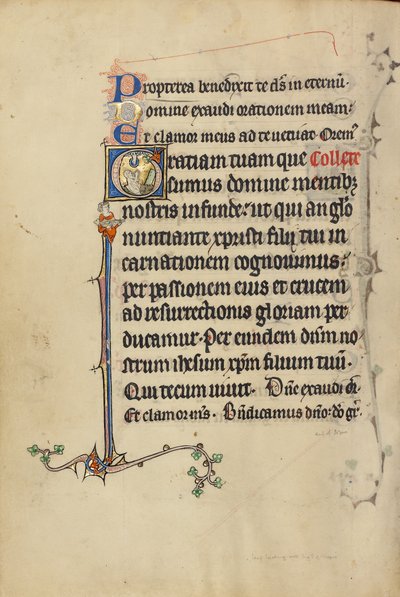 Propterea benedixit te ds in eternū.
Domine exaudi orationem meam:
Et clamor meus ad te ueniat. Orem
Gratiam tuam que Collete
sumus domine mentibꝫ
nostris infunde: ut qui anglo
nuntiante xpristi filij tui in
carnationem cognouimus:
per passionem eius et crucem
ad resurrectionis gloriam per
ducamur. Per eundem dnm no
strum ihesum xpm filium tuū.
Qui tecum uiuit. Dne exaudi or
Et clamor ms. Bndicamus dno: do gr